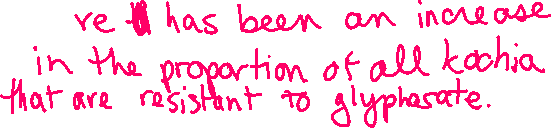 re has been an increase
in the proportion of all kochia
that are resistant to glyphosate.